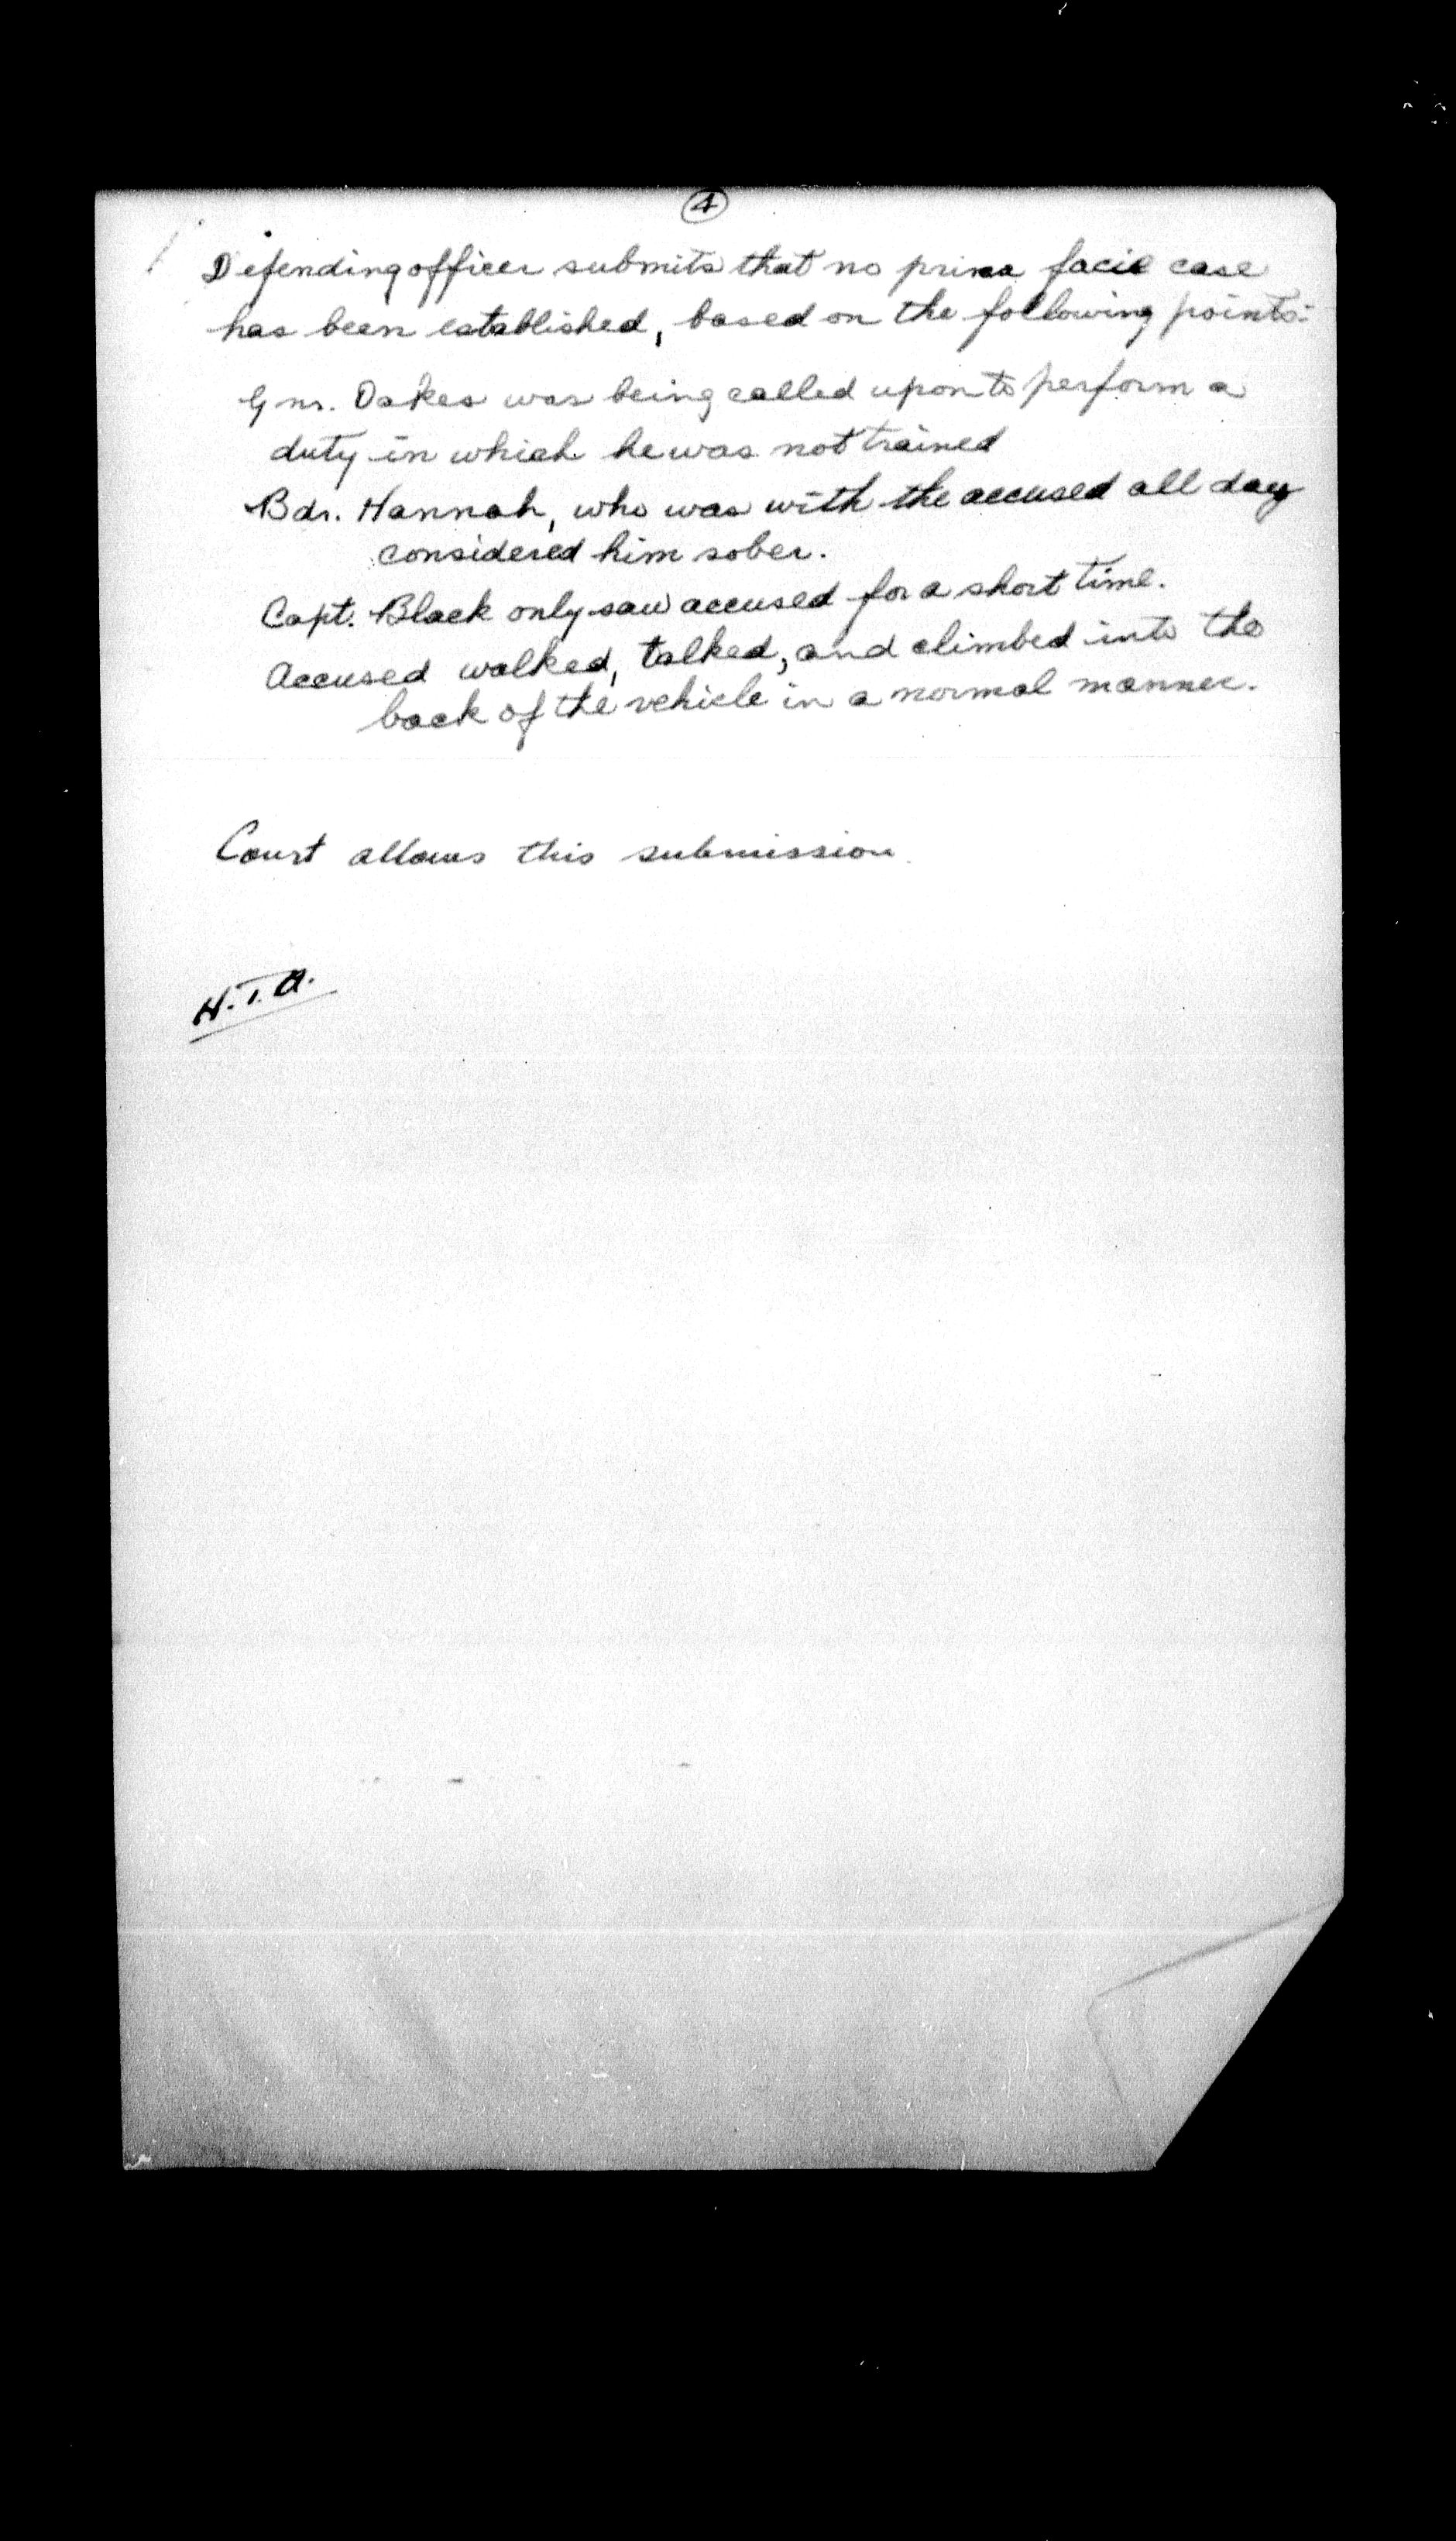 4
Defending officer submits that no prima facie case
has been established, based on the following points:-
Gnr. Oakes was being called upon to perform a
duty in which he was not trained
Bdr. Hannah, who was with the accused all day
considered him sober.
Capt. Black only saw accused for a short time.
Accused walked, talked, and climbed into the
back of the vehicle in a normal manner.
Court allows this submission.